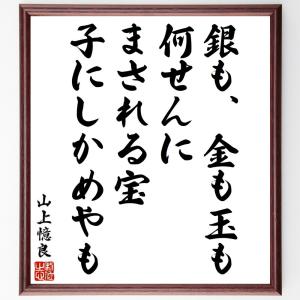 銀も、金も玉も
何せんに
まされる宝
子にしかめやも
山上憶良